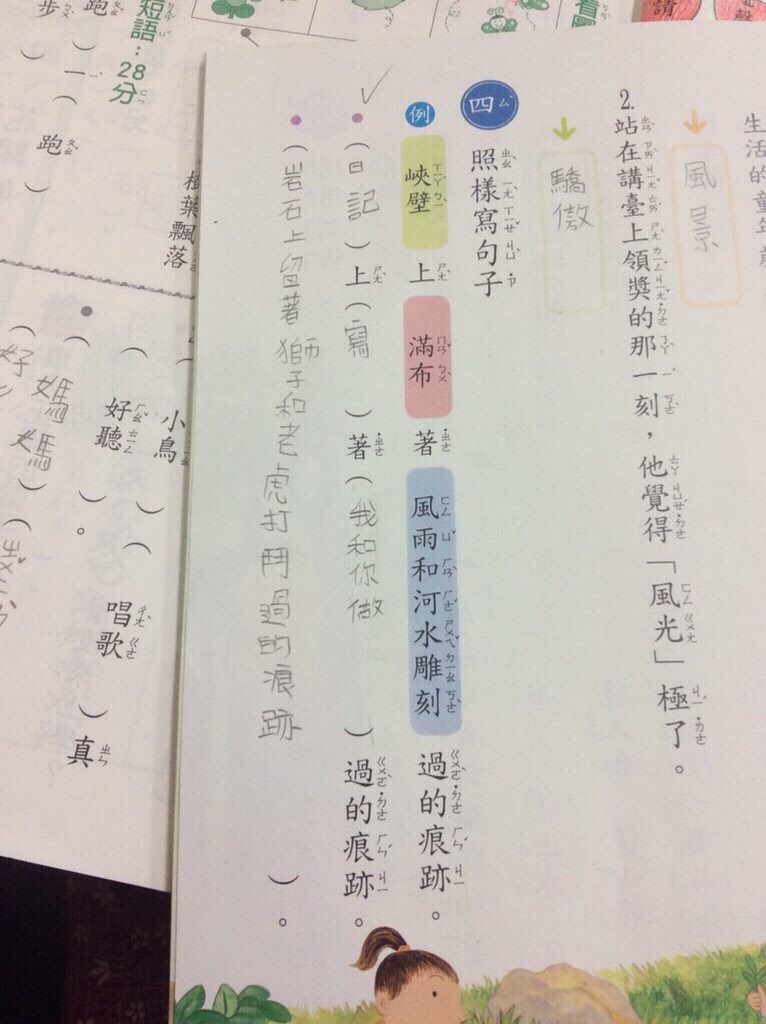 生活的童年
風景
2. 站在講臺上領獎的那一刻，他覺得「風光」極了。
驕傲
四 照樣寫句子
例 峽壁上滿布著風雨和河水雕刻過的痕跡。
（日記）上（寫）著（我和你做）過的痕跡。
（岩石上留著獅子和老虎打鬥過的痕跡）。
請
看圖
短語：28分
跑
步
（跑）
樹葉飄落
小鳥（）（唱歌）真
好聽（）。
（媽媽）
好